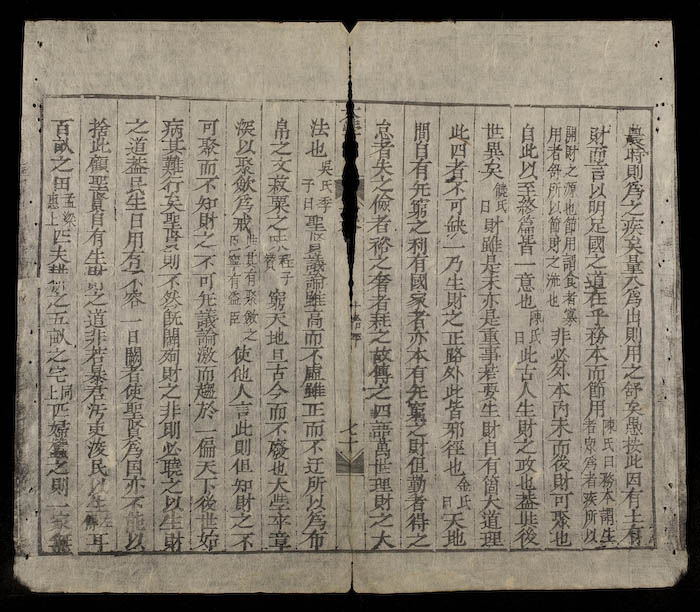 農時則為之疾矣量入為出則用之舒矣愚按此因有土有
財而言以明足國之道在乎務本而節用陳氏曰務本謂生者眾為者疾所以
開財之源也節用謂食者寡用者舒所以節財之流也非必外本內末而後財可聚也
自此以至終篇皆一意也陳氏曰此古人生財之政也蓋與後
世異矣饒氏曰財雖是末亦是重事若要生財自有箇大道理
此四者不可缺一乃生財之正路外此皆邪徑也金氏曰天地
間自有无窮之利有國家者亦本有无窮之財但勤者得之
怠者失之儉者裕之奢者耗之故傳之四語萬世理財之大
七十
法也吳氏季子曰聖賢議論雖高而不虛雖正而不迂所以為布
帛之文菽粟之味程子贊窮天地亘古今而不廢也大學卒章
深以聚斂為戒與其有聚斂之臣寧有盜臣使他人言此則但知財之不
可聚而不知財之不可无議論激而趨於一偏天下後世始
病其難行矣聖賢則不然既闢殉財之非則必曉之以生財
之道蓋民生日用有不容一日闕者使聖賢為國亦不能以
捨此顧聖賢自有生財之道非若暴君污吏浚民以生耳
百畝之田孟梁惠上匹夫耕之五畝之宅同上匹婦蠶之則一家無